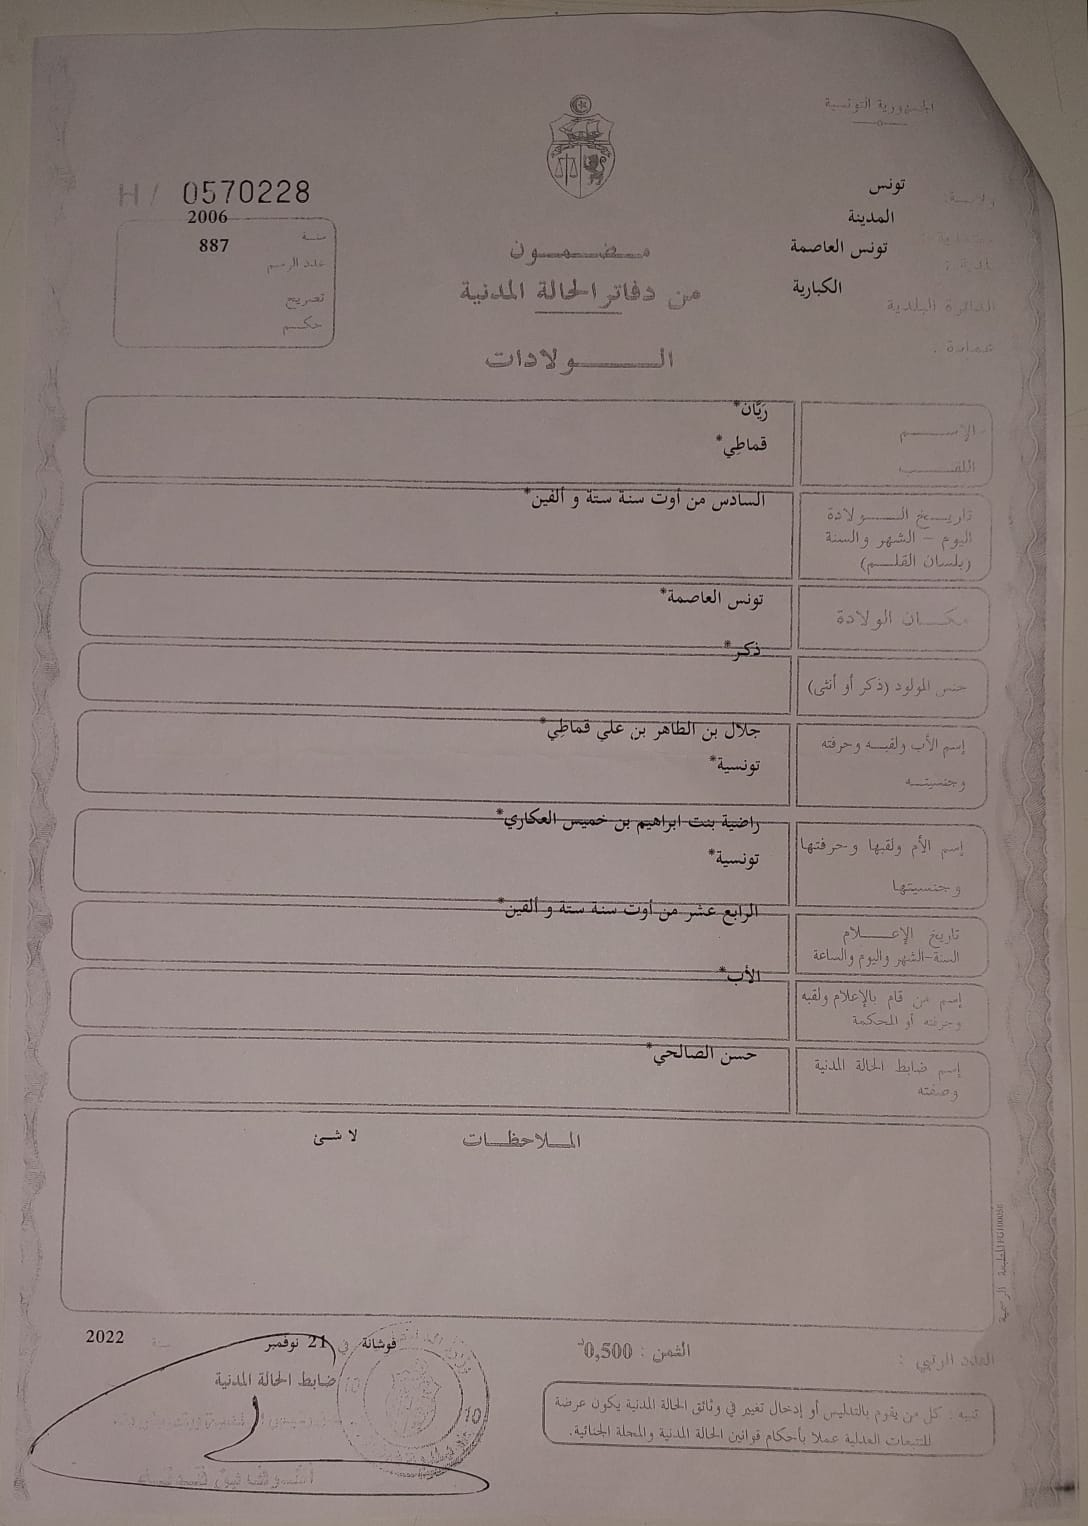 الجمهورية التونسية
H/ 0570228
ولاية: تونس
معتمدية: المدينة
تونس العاصمة
الدائرة البلدية الكبارية
عمادة :
سنة 2006
عدد الرسم 887
تصريح
حكم
مضمون
من دفاتر الحالة المدنية
الولادات
الإسم ريّان*
اللقب قماطِي*
تاريخ الولادة السادس من أوت سنة ستة و ألفين*
اليوم - الشهر والسنة
(بلسان القلم)
مكان الولادة تونس العاصمة*
جنس المولود (ذكر أو أنثى) ذكر*
إسم الأب ولقبه وحرفته جلال بن الطاهر بن علي قماطِي*
وجنسيته تونسية*
إسم الأم ولقبها وحرفتها راضية بنت ابراهيم بن خميس العكاري*
وجنسيتها تونسية*
تاريخ الإعلام الرابع عشر من أوت سنة ستة و ألفين*
السنة-الشهر واليوم والساعة
إسم من قام بالإعلام ولقبه الأب*
وحرفته أو المحكمة
إسم ضابط الحالة المدنية حسن الصالحي*
وصفته
الملاحظات لا شئ
المطبعة الرسمية
العدد الرتبي :
الثمن : 0,500د
فوشانة في 21 نوفمبر سنة 2022
ضابط الحالة المدنية
10
تنبيه : كل من يقوم بالتدليس أو إدخال تغيير في وثائق الحالة المدنية يكون عرضة
للتتبعات العدلية عملا بأحكام قوانين الحالة المدنية والمجلة الجنائية.